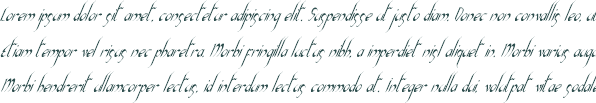 Lorem ipsum dolor sit amet, consectetur adipiscing elit. Suspendisse ut justo diam. Donec non convallis leo, u
Etiam tempor vel risus nec pharetra. Morbi fringilla luctus nibh, a imperdiet nisl aliquet in. Morbi varius augu
Morbi hendrerit ullamcorper lectus, id interdum lectus commodo at. Integer nulla dui, volutpat vitae sodale